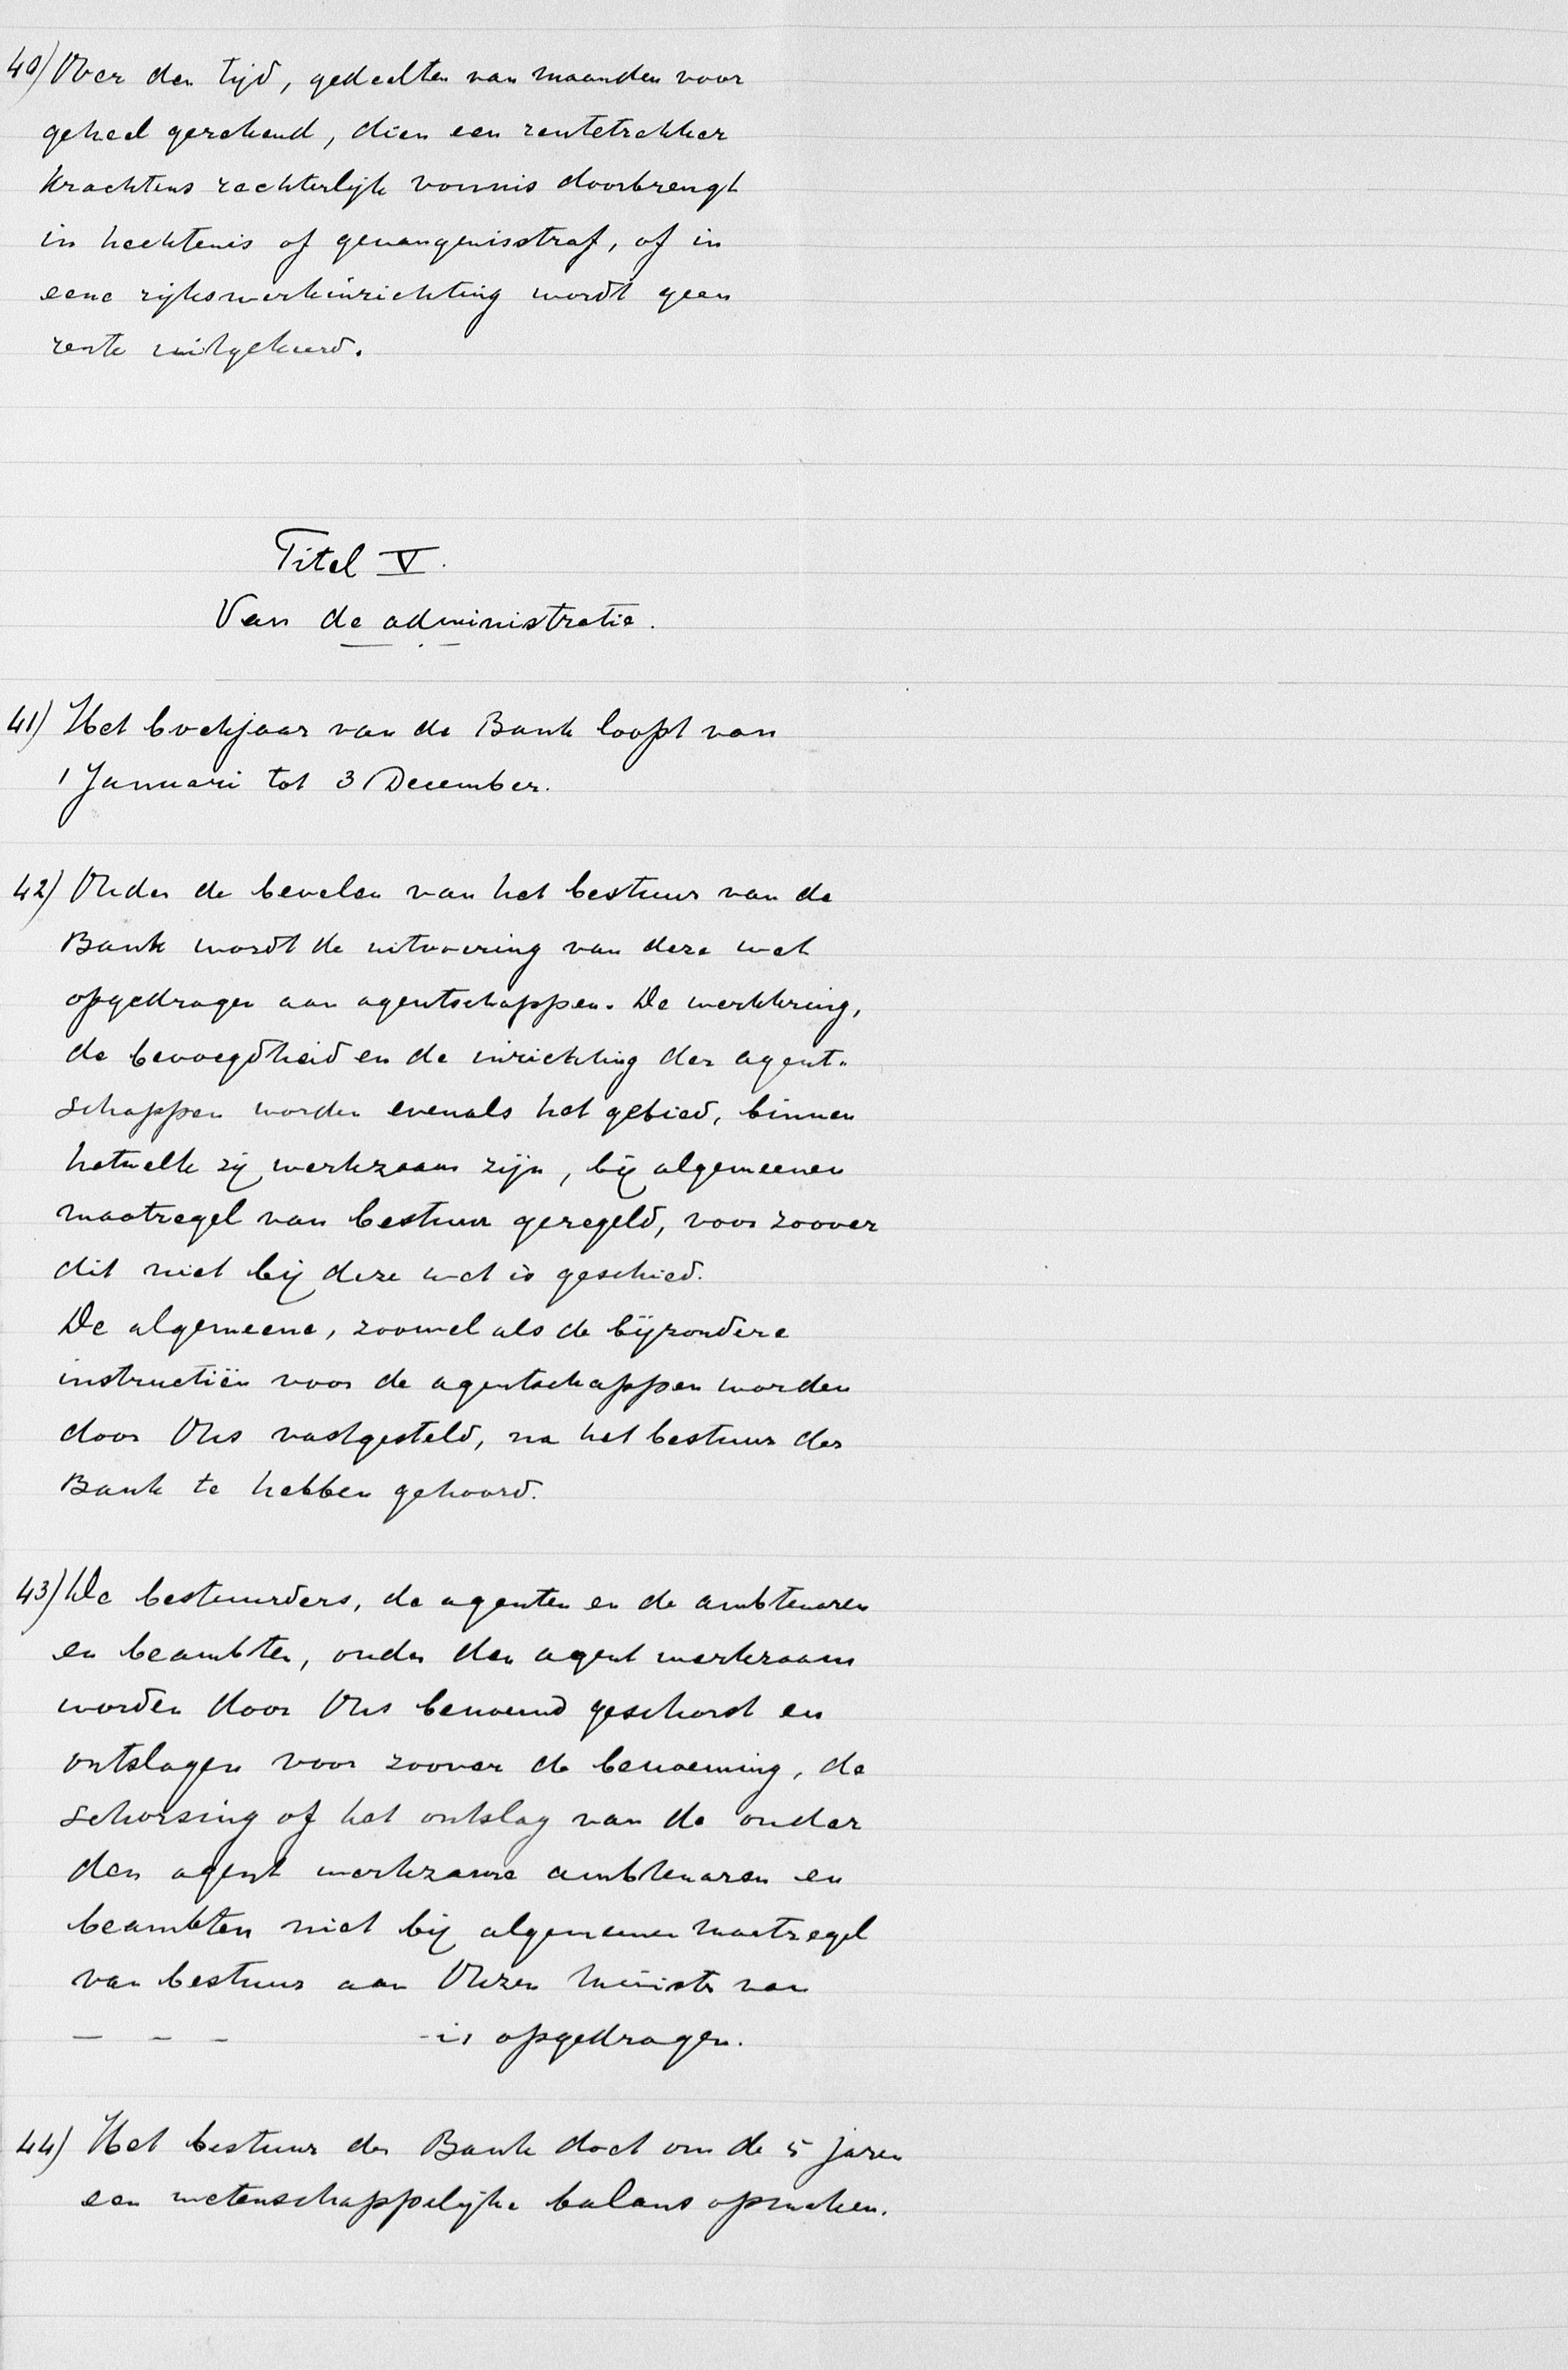 40) Over den tijd, gedeelten van maanden voor
geheel gerekend, dien een rentetrekker
krachtens rechterlijk vonnis doorbrengt
in hechtenis of gevangenisstraf, of in
eene rijkswerkinrichting wordt geen
rente uitgekeerd.
Titel V.
Van de administratie.
41) Het boekjaar van de Bank loopt van
1 Januari tot 31 December.
42) Onder de bevelen van het bestuur van de
Bank wordt de uitvoering van deze wet
opgedragen aan agentschappen. De werkkring,
de bevoegdheid en de inrichting der agent-
schappen worden evenals het gebied, binnen
hetwelk zij werkzaam zijn, bij algemeenen
maatregel van bestuur geregeld, voor zoover
dit niet bij deze wet is geschied.
De algemeene, zoowel als de bijzondere
instructiën voor de agentschappen worden
door Ons vastgesteld, na het bestuur der
Bank te hebben gehoord.
43) De bestuurders, de agenten en de ambtenaren
en beambten, onder den agent werkzaam
worden door Ons benoemd geschorst en
ontslagen voor zoover de benoeming, de
schorsing of het ontslag van de onder
den agent werkzame ambtenaren en
beambten niet bij algemeenen maatregel
van bestuur aan Onzen Minister van
- - - - is opgedragen.
44) Het bestuur der Bank doet om de 5 jaren
een wetenschappelijke balans opmaken.